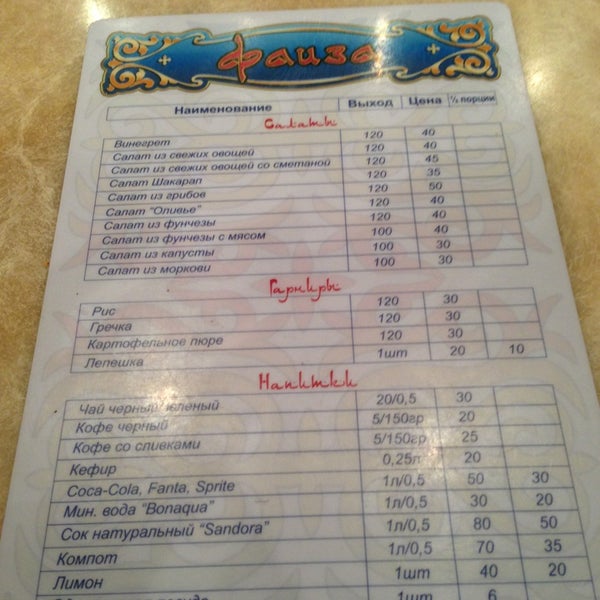 фаиза
Наименование Выход Цена ½ порции
Салаты
Винегрет 120 40
Салат из свежих овощей 120 40
Салат из свежих овощей со сметаной 120 45
Салат Шакарап 120 35
Салат из грибов 120 50
Салат "Оливье" 120 40
Салат из фунчезы 120 40
Салат из фунчезы с мясом 100 40
Салат из капусты 100 30
Салат из моркови 100 30
Гарниры
Рис 120 30
Гречка 120 30
Картофельное пюре 120 30
Лепешка 1шт 20 10
Напитки
Чай черный зеленый 20/0,5 30
Кофе черный 5/150гр 20
Кофе со сливками 5/150гр 25
Кефир 0,25л 20
Coca-Cola, Fanta, Sprite 1л/0,5 50 30
Мин. вода "Bonaqua" 1л/0,5 30 20
Сок натуральный "Sandora" 1л/0,5 80 50
Компот 1л/0,5 70 35
Лимон 1шт 40 20
1шт 6